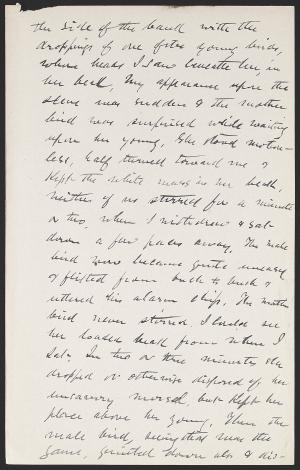 the side of the bank with the
droppings of one of its young birds,
whose heads I saw beneath her, in
her beak. My appearance upon the
scene was sudden & the mother
bird was surprised while waiting
upon her young. She stood motion-
less, half turned toward me &
kept the white mass in her beak,
neither of us stirred for a minute
or two, when I withdrew & sat
down a few paces away. The male
bird now became quite uneasy
& flitted from bush to bush &
uttered his alarm chips. The mother
bird never stirred. I could see
her loaded beak from where I
sat. In two or three minutes she
dropped or otherwise disposed of, her
unsavory morsel, but kept her
place above her young. Then the
male bird, seeing what was the
game, quieted down also & dis-